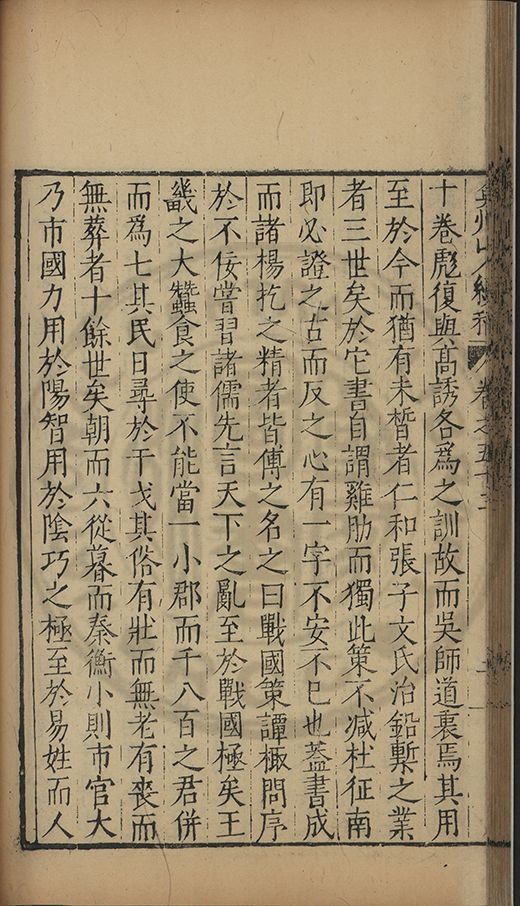 弇州山人續稿 卷之五十三
十卷彪復與高誘各爲之訓故而吳師道裏焉其用
至於今而猶有未晳者仁和張子文氏治鉛槧之業
者三世矣於它書自謂雞肋而獨此策不减杜征南
即必證之古而反之心有一字不安不巳也蓋書成
而諸楊扢之精者皆傅之名之曰戰國策譚棷問序
於不佞嘗習諸儒先言天下之亂至於戰國極矣王
畿之大蠶食之使不能當一小郡而千八百之君併
而爲七其民日尋於干戈其俗有壯而無老有喪而
無葬者十餘世矣朝而六從暮而秦衡小則市官大
乃市國力用於陽智用於陰巧之極至於易姓而人